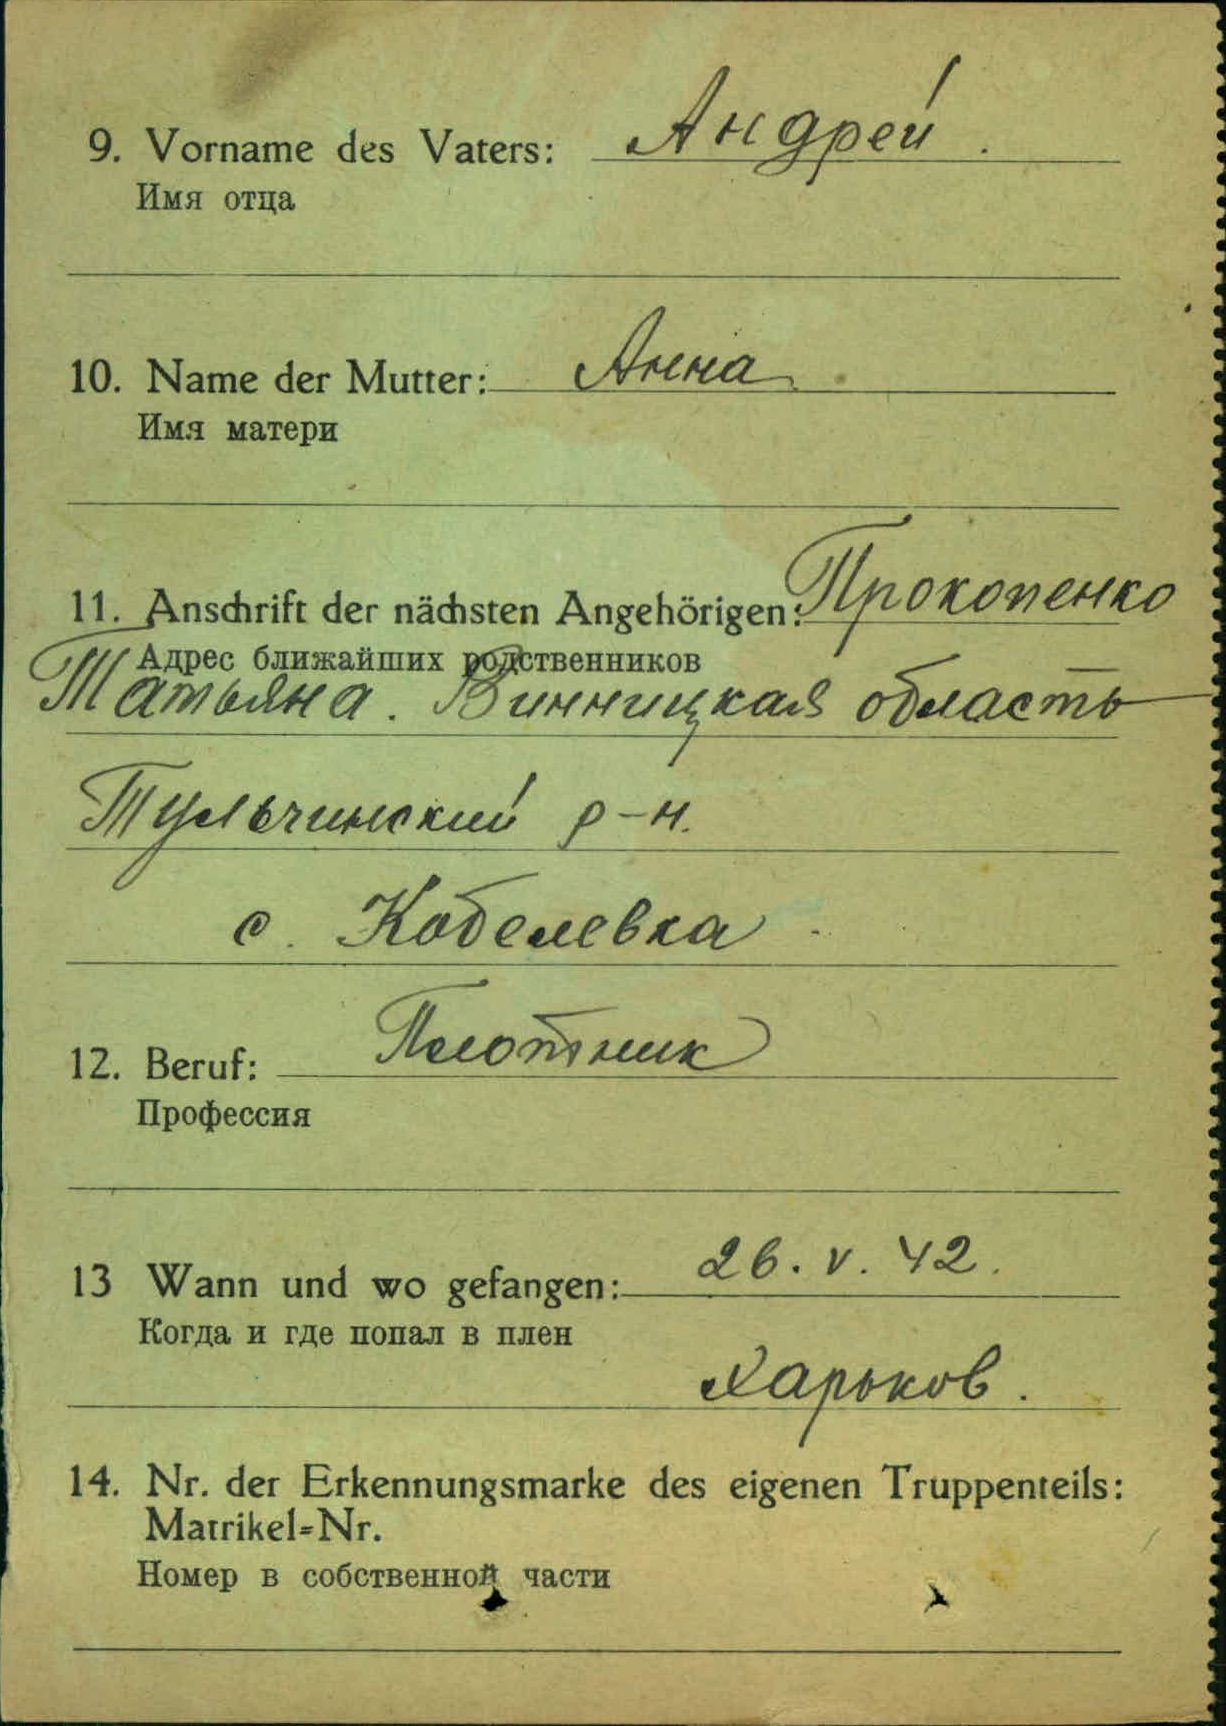 9. Vorname des Vaters: Андрей.
Имя отца
10. Name der Mutter: Анна
Имя матери
11. Anschrift der nächsten Angehörigen: Прокопенко
Адрес ближайших родственников
Татьяна. Винницкая область
Тульчинский р-н.
с. Кобелевка
12. Beruf: Плотник
Профессия
13 Wann und wo gefangen: 26. V. 42.
Когда и где попал в плен
Харьков.
14. Nr. der Erkennungsmarke des eigenen Truppenteils:
Matrikel=Nr.
Номер в собственной части